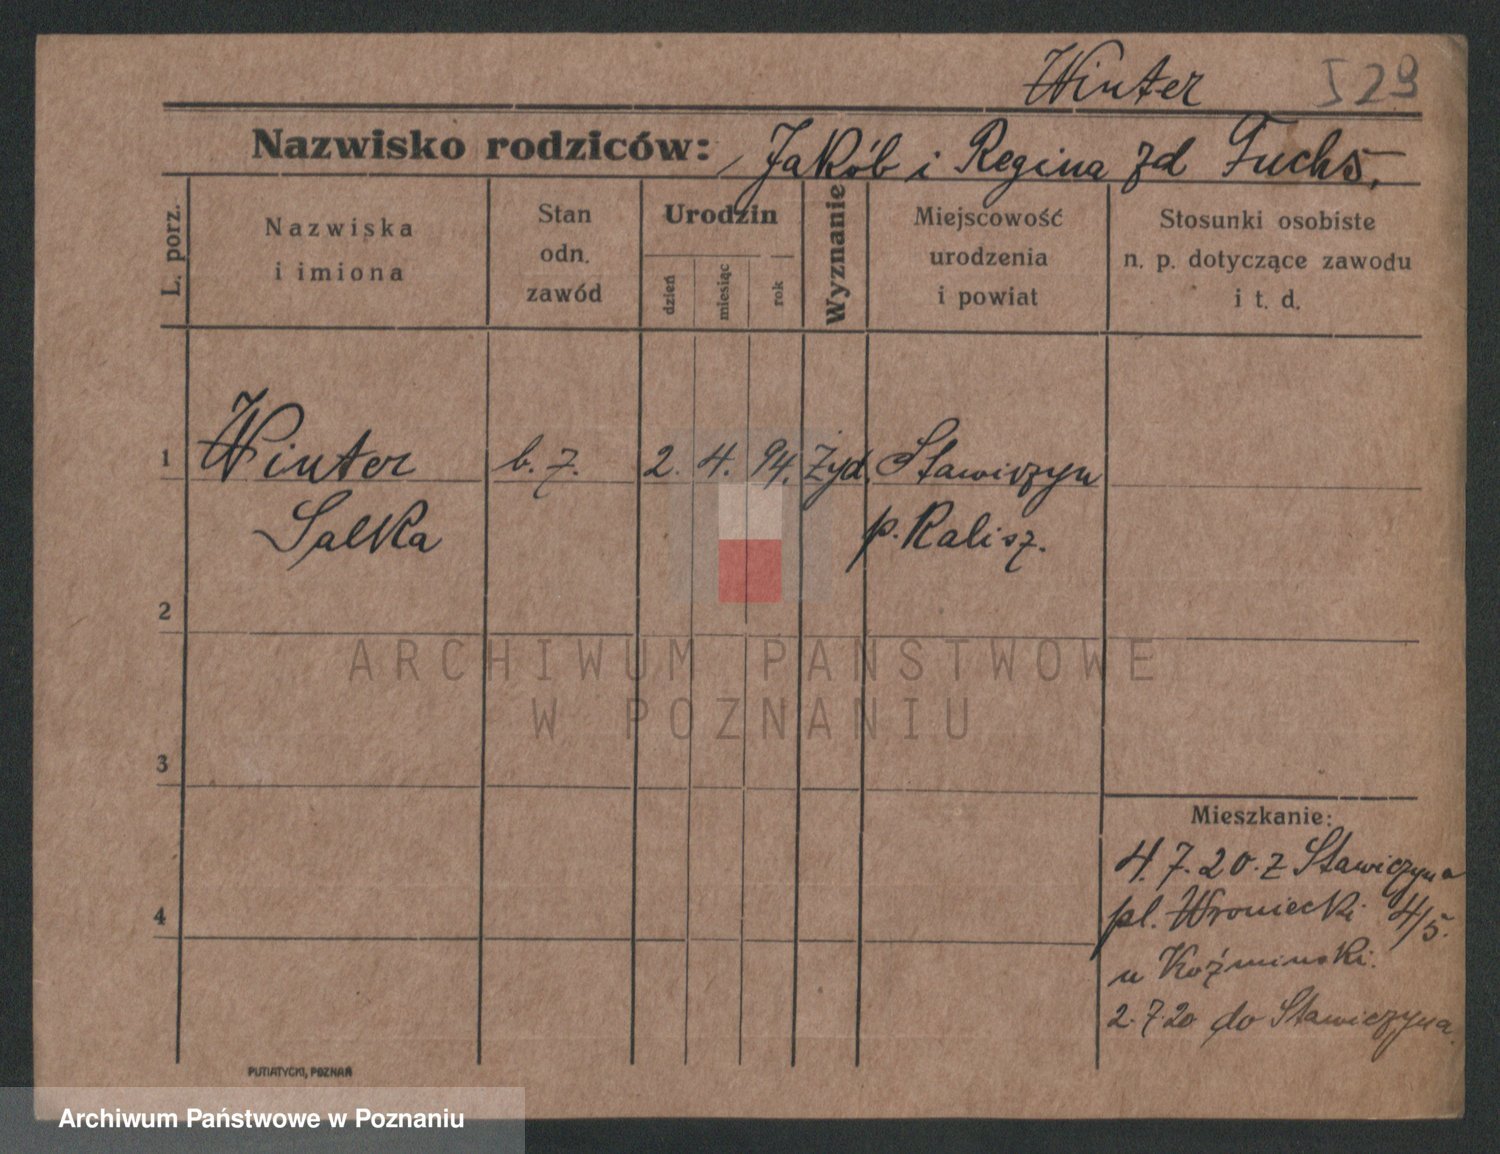 Winter 529
Nazwisko rodziców: Jakób i Regina zd Fuchs.
L. porz.
Nazwiska
i imiona
Stan
odn.
zawód
Urodzin
dzień
miesiąc
rok
Wyznanie
Miejscowość
urodzenia
i powiat
Stosunki osobiste
n. p. dotyczące zawodu
i t. d.
1 Winter b. z. 2. 4. 94. Żyd. Stawiszyn
Salka p. Kalisz.
2
ARCHIWUM PAŃSTWOWE
W POZNANIU
3
Mieszkanie:
4. 7. 20. z Stawiczyna
4 pl. Wroniecki 4/5.
u Koźminski.
2. 7. 20 do Stawiczyna.
PUTIATYCKI, POZNAŃ
Archiwum Państwowe w Poznaniu